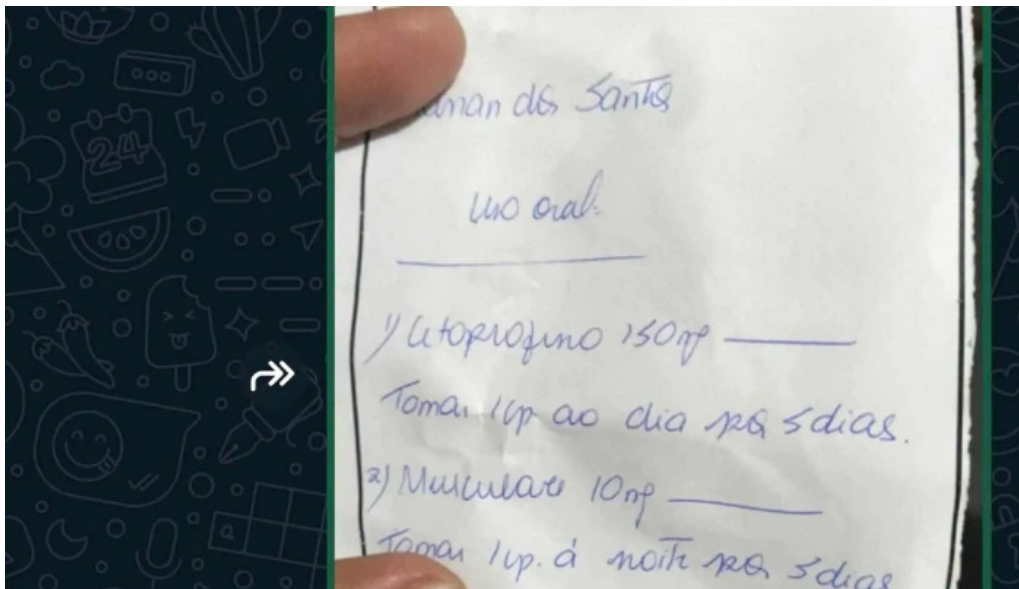 dos Santos
uso oral.
1) Cetoprofeno 150mg
Tomar 1 cp ao dia por 5 dias.
2) Musculare 10mg
Tomar 1 cp. à noite por 5 dias
24